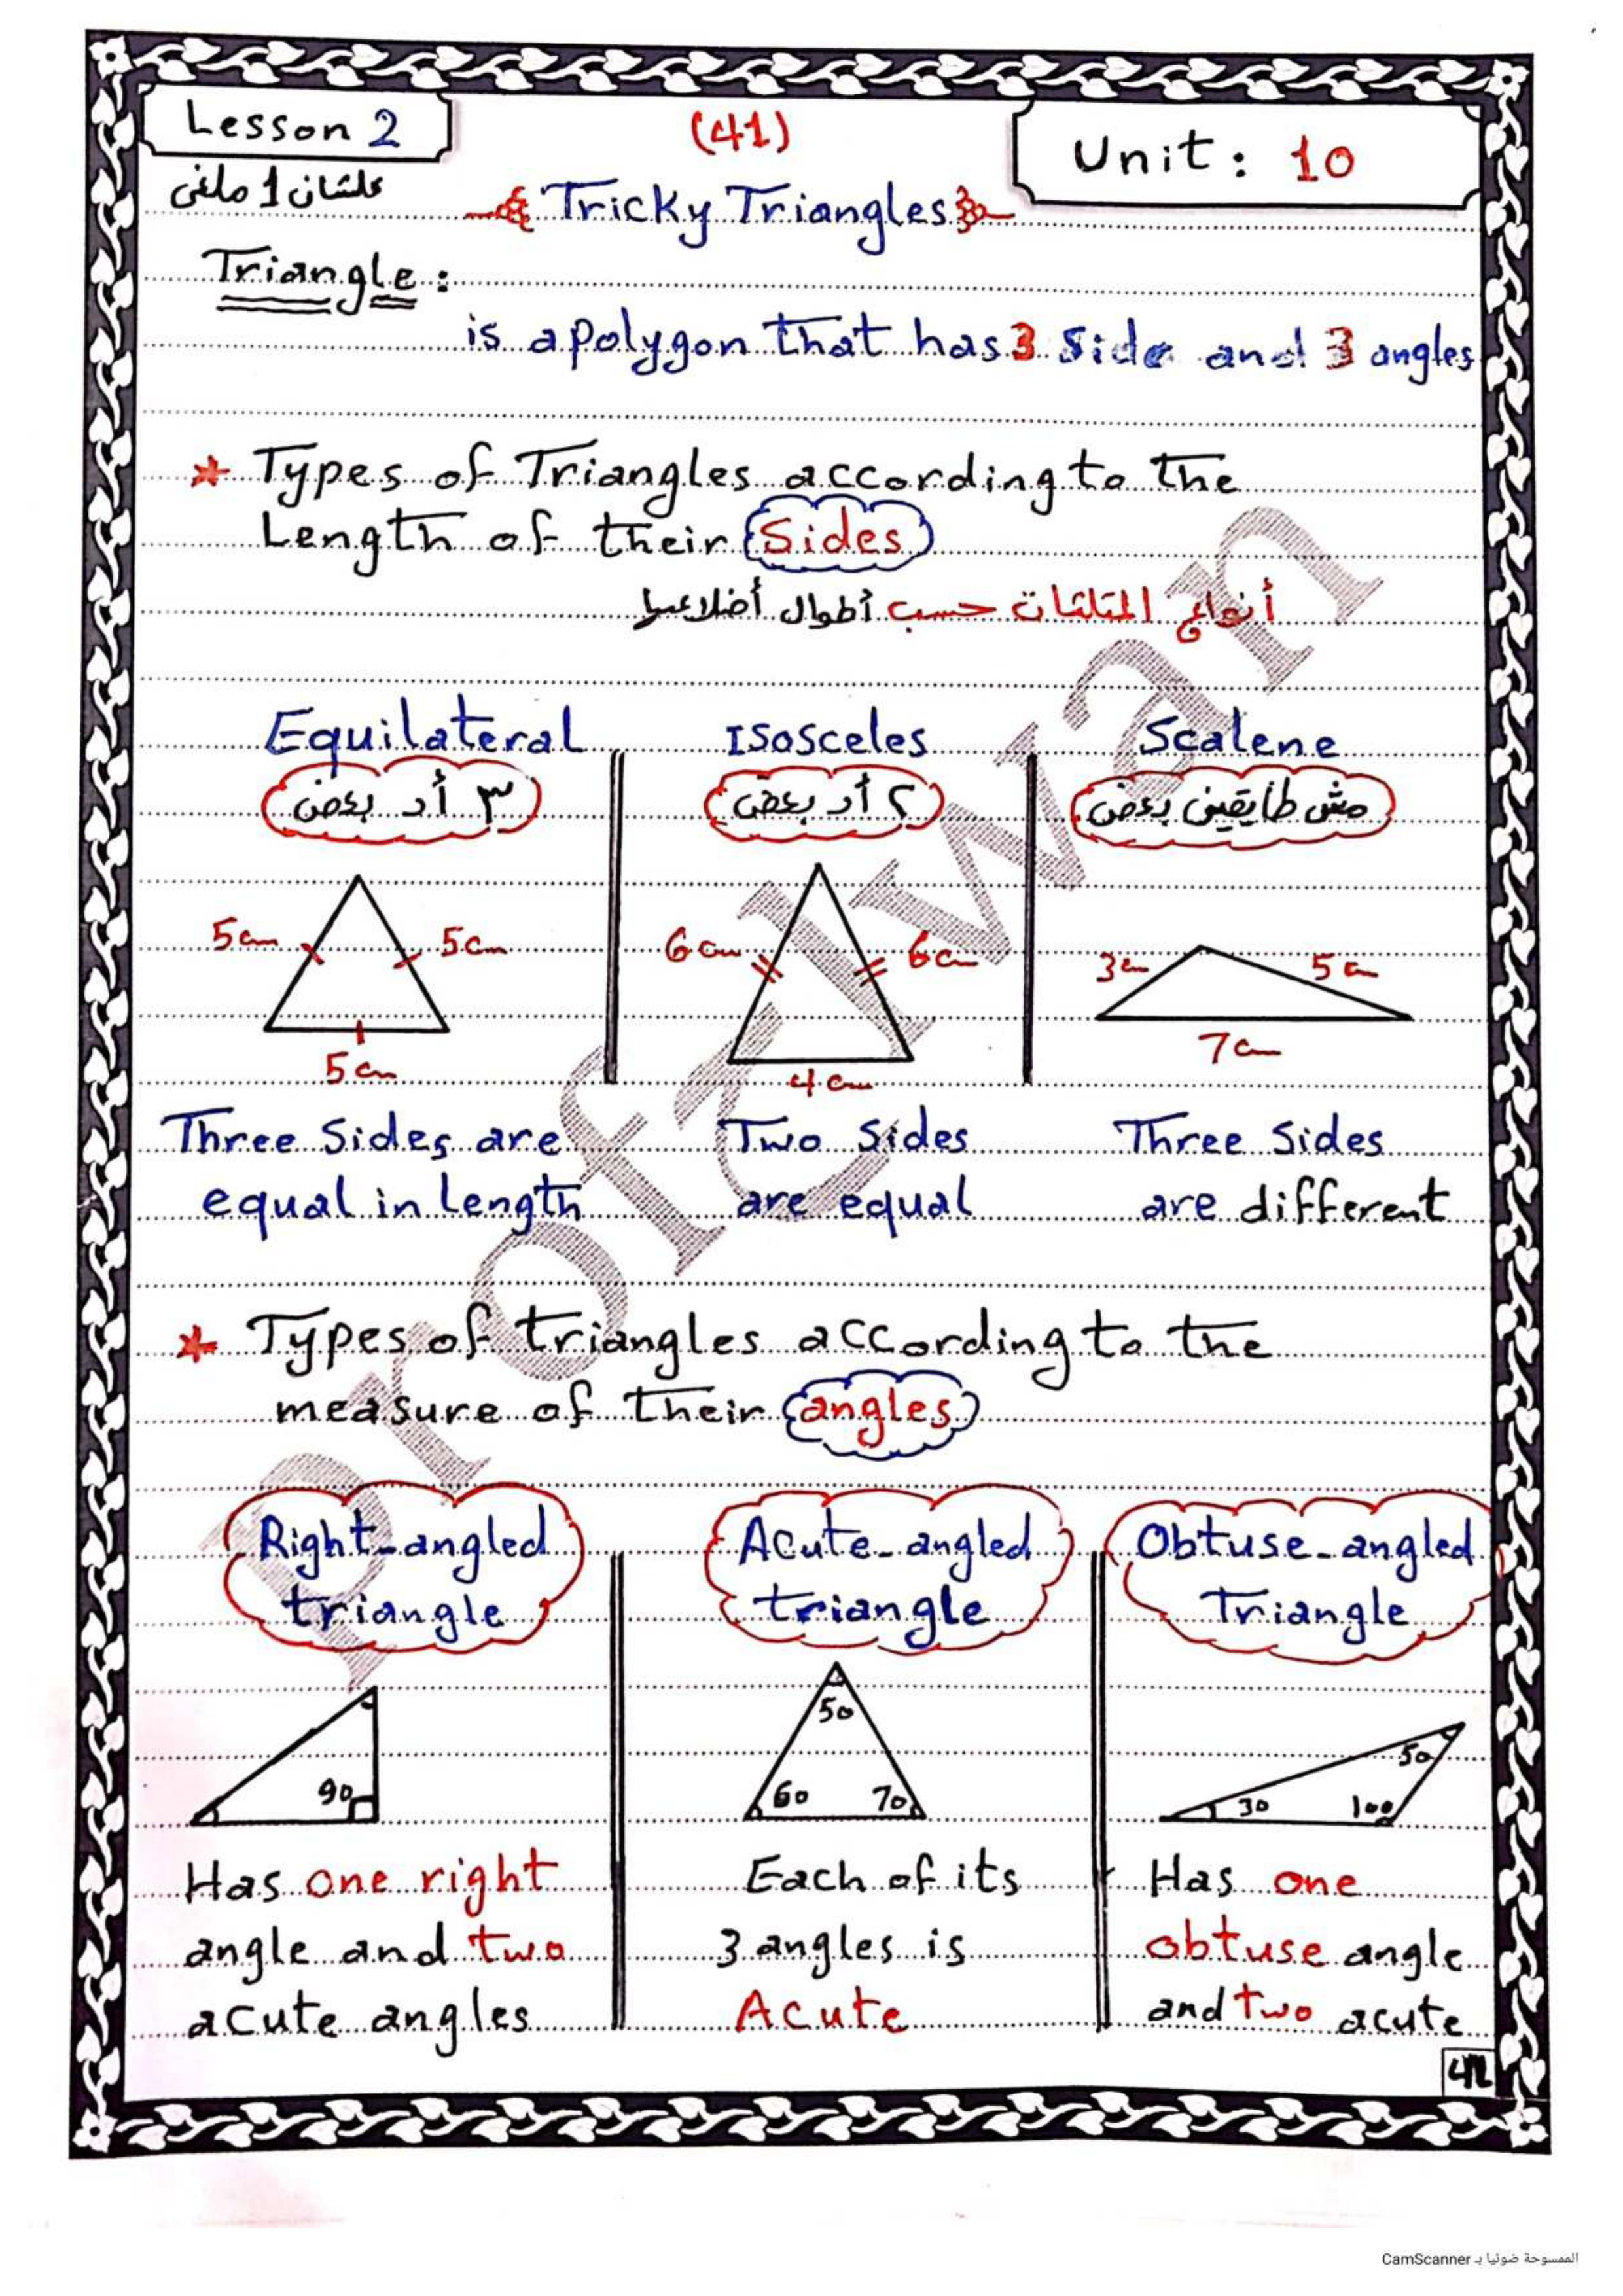 Lesson 2
(41)
Unit: 10
علشان 1 ملغى
Tricky Triangles
Triangle:
is a polygon that has 3 side and 3 angles
* Types of Triangles according to the
Length of their Sides
أنواع المثلثات حسب أطوال أضلاعها
Equilateral
Isosceles
Scalene
٣ أد بعض
٢ أد بعض
مش طايقين بعض
5cm
5cm
5cm
6cm
6cm
4cm
3cm
5cm
7cm
Three Sides are
equal in Length
Two Sides
are equal
Three Sides
are different
* Types of triangles according to the
measure of their angles
Right-angled
triangle
Acute-angled
triangle
Obtuse-angled
Triangle
90
50
60
70
50
30
100
Has one right
angle and two
acute angles
Each of its
3 angles is
Acute
Has one
obtuse angle
and two acute
الممسوحة ضوئيا بـ CamScanner